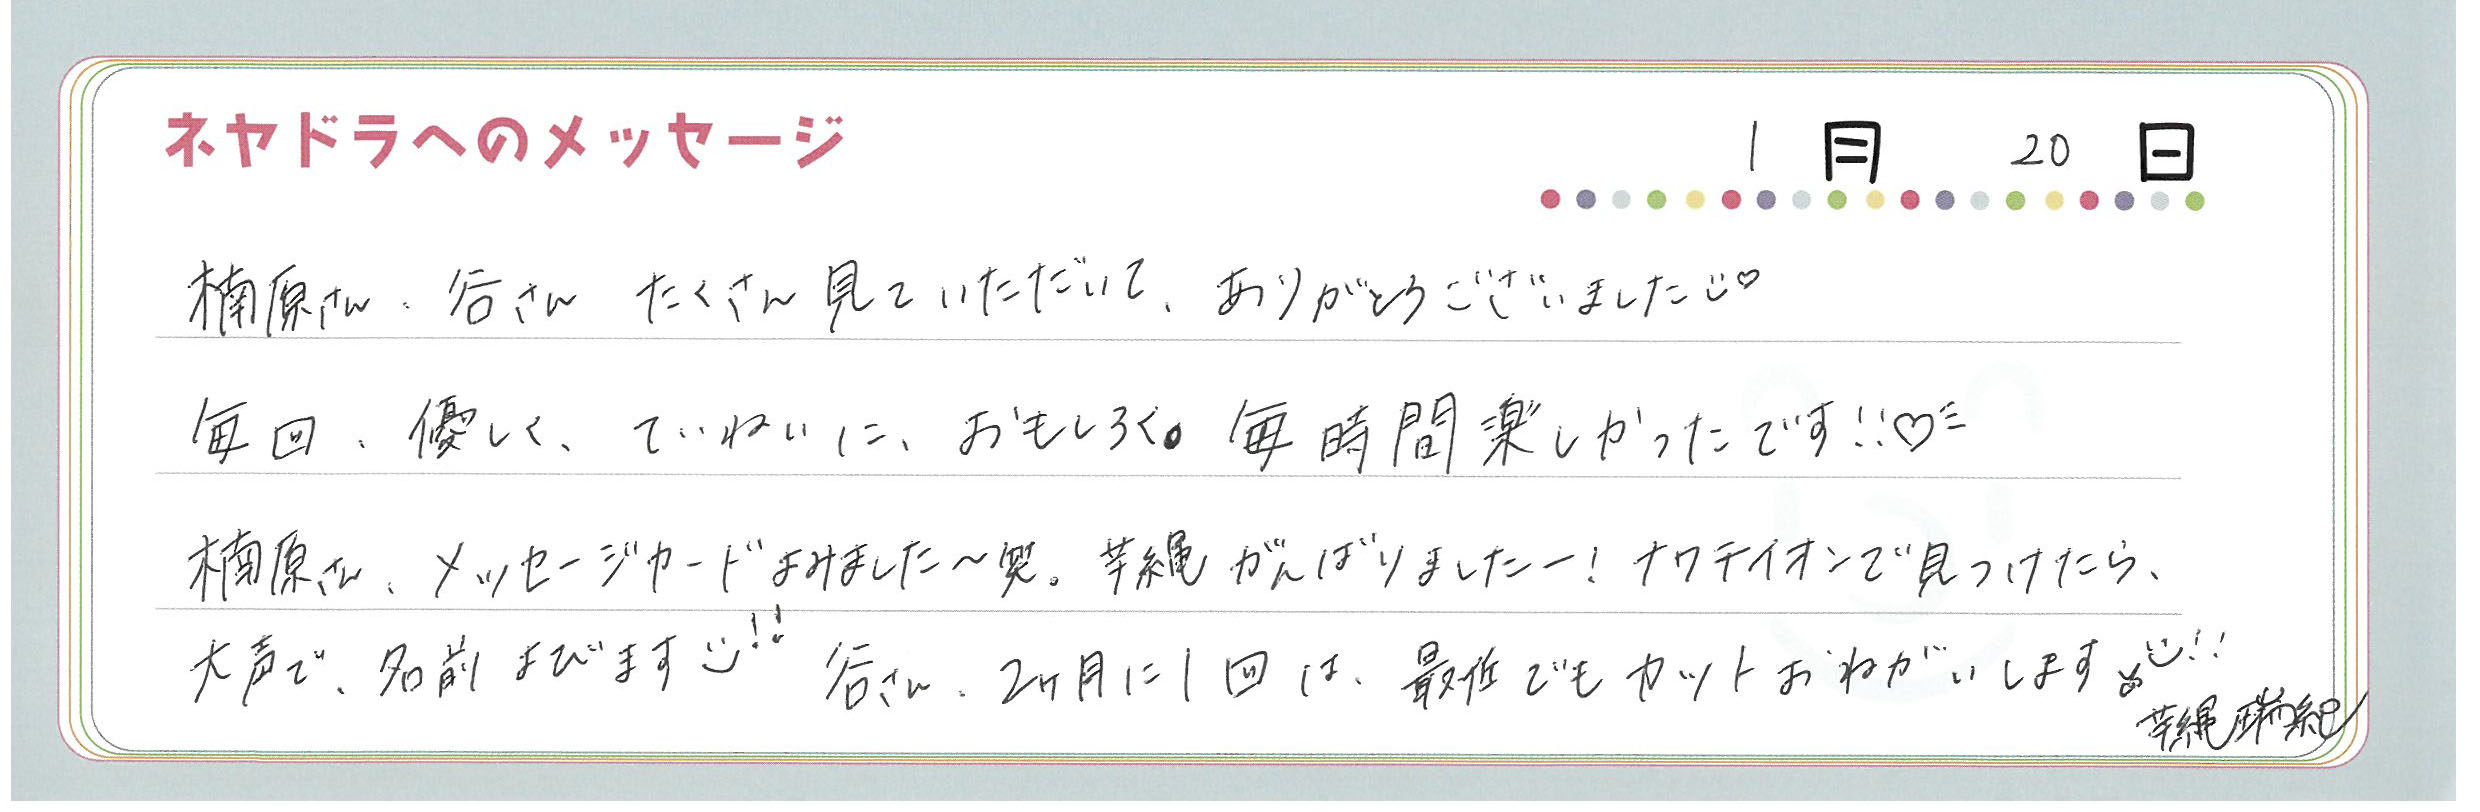 ネヤドラへのメッセージ
1月 20日
楠原さん、谷さん たくさん見ていただいて、ありがとうございました
毎回、優しく、ていねいに、おもしろく。毎時間楽しかったです!!♡
楠原さん、メッセージカードよみました〜笑。芋縄がんばりましたー!ナワテイオンで見つけたら、
大声で、名前よびます!! 谷さん、2ヶ月に1回は、最低でもカットおねがいします!!
芋縄瑞紀